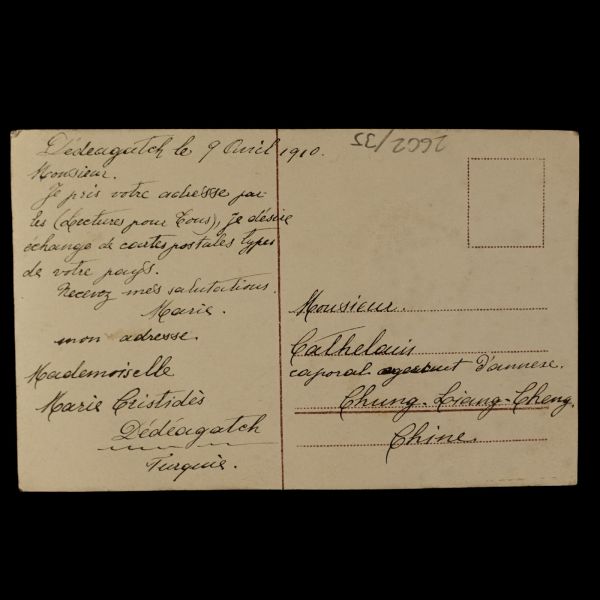 Dédéagatch le 9 Avril 1910.
Monsieur.
Je pris votre adresse par
les (Lectures pour Tous), je désire
echange de cartes postales types
de votre payés.
Recevez mes salutations.
Marie.
mon adresse.
Mademoiselle
Marie Cristidès
Dédéagatch
Turquie.
2602/35
Monsieur.
Cathelain
caporal d'annexe.
Chung-Liang-Cheng.
Chine.